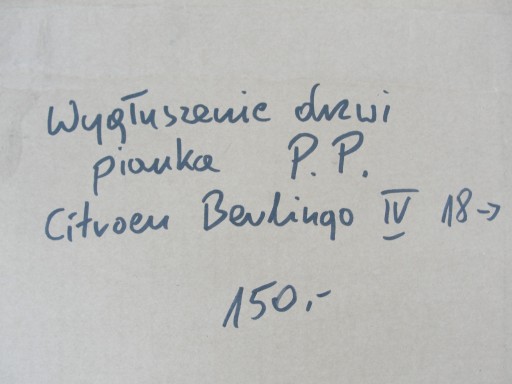 Wygłuszenie drzwi
pianka P.P.
Citroen Berlingo IV 18->
150,-